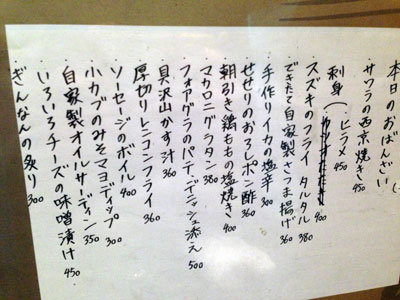 本日のおばんざい
サワラの西京焼き 450
刺身(ヒラメ 450
スズキのフライ タルタル 400
できたて自家製さつま揚げ 380
手作りイカの塩辛 300
せせりのおろしポン酢 360
朝引き鶏ももの塩焼き 400
マカロニグラタン 380
フォアグラのパテ、デニッシュ添え 500
具沢山かす汁 360
厚切りレンコンフライ 360
ソーセージのボイル 400
小カブのみそマヨディップ 300
自家製オイルサーディン 350
いろいろチーズの味噌漬け 450
ぎんなんの炙り 300